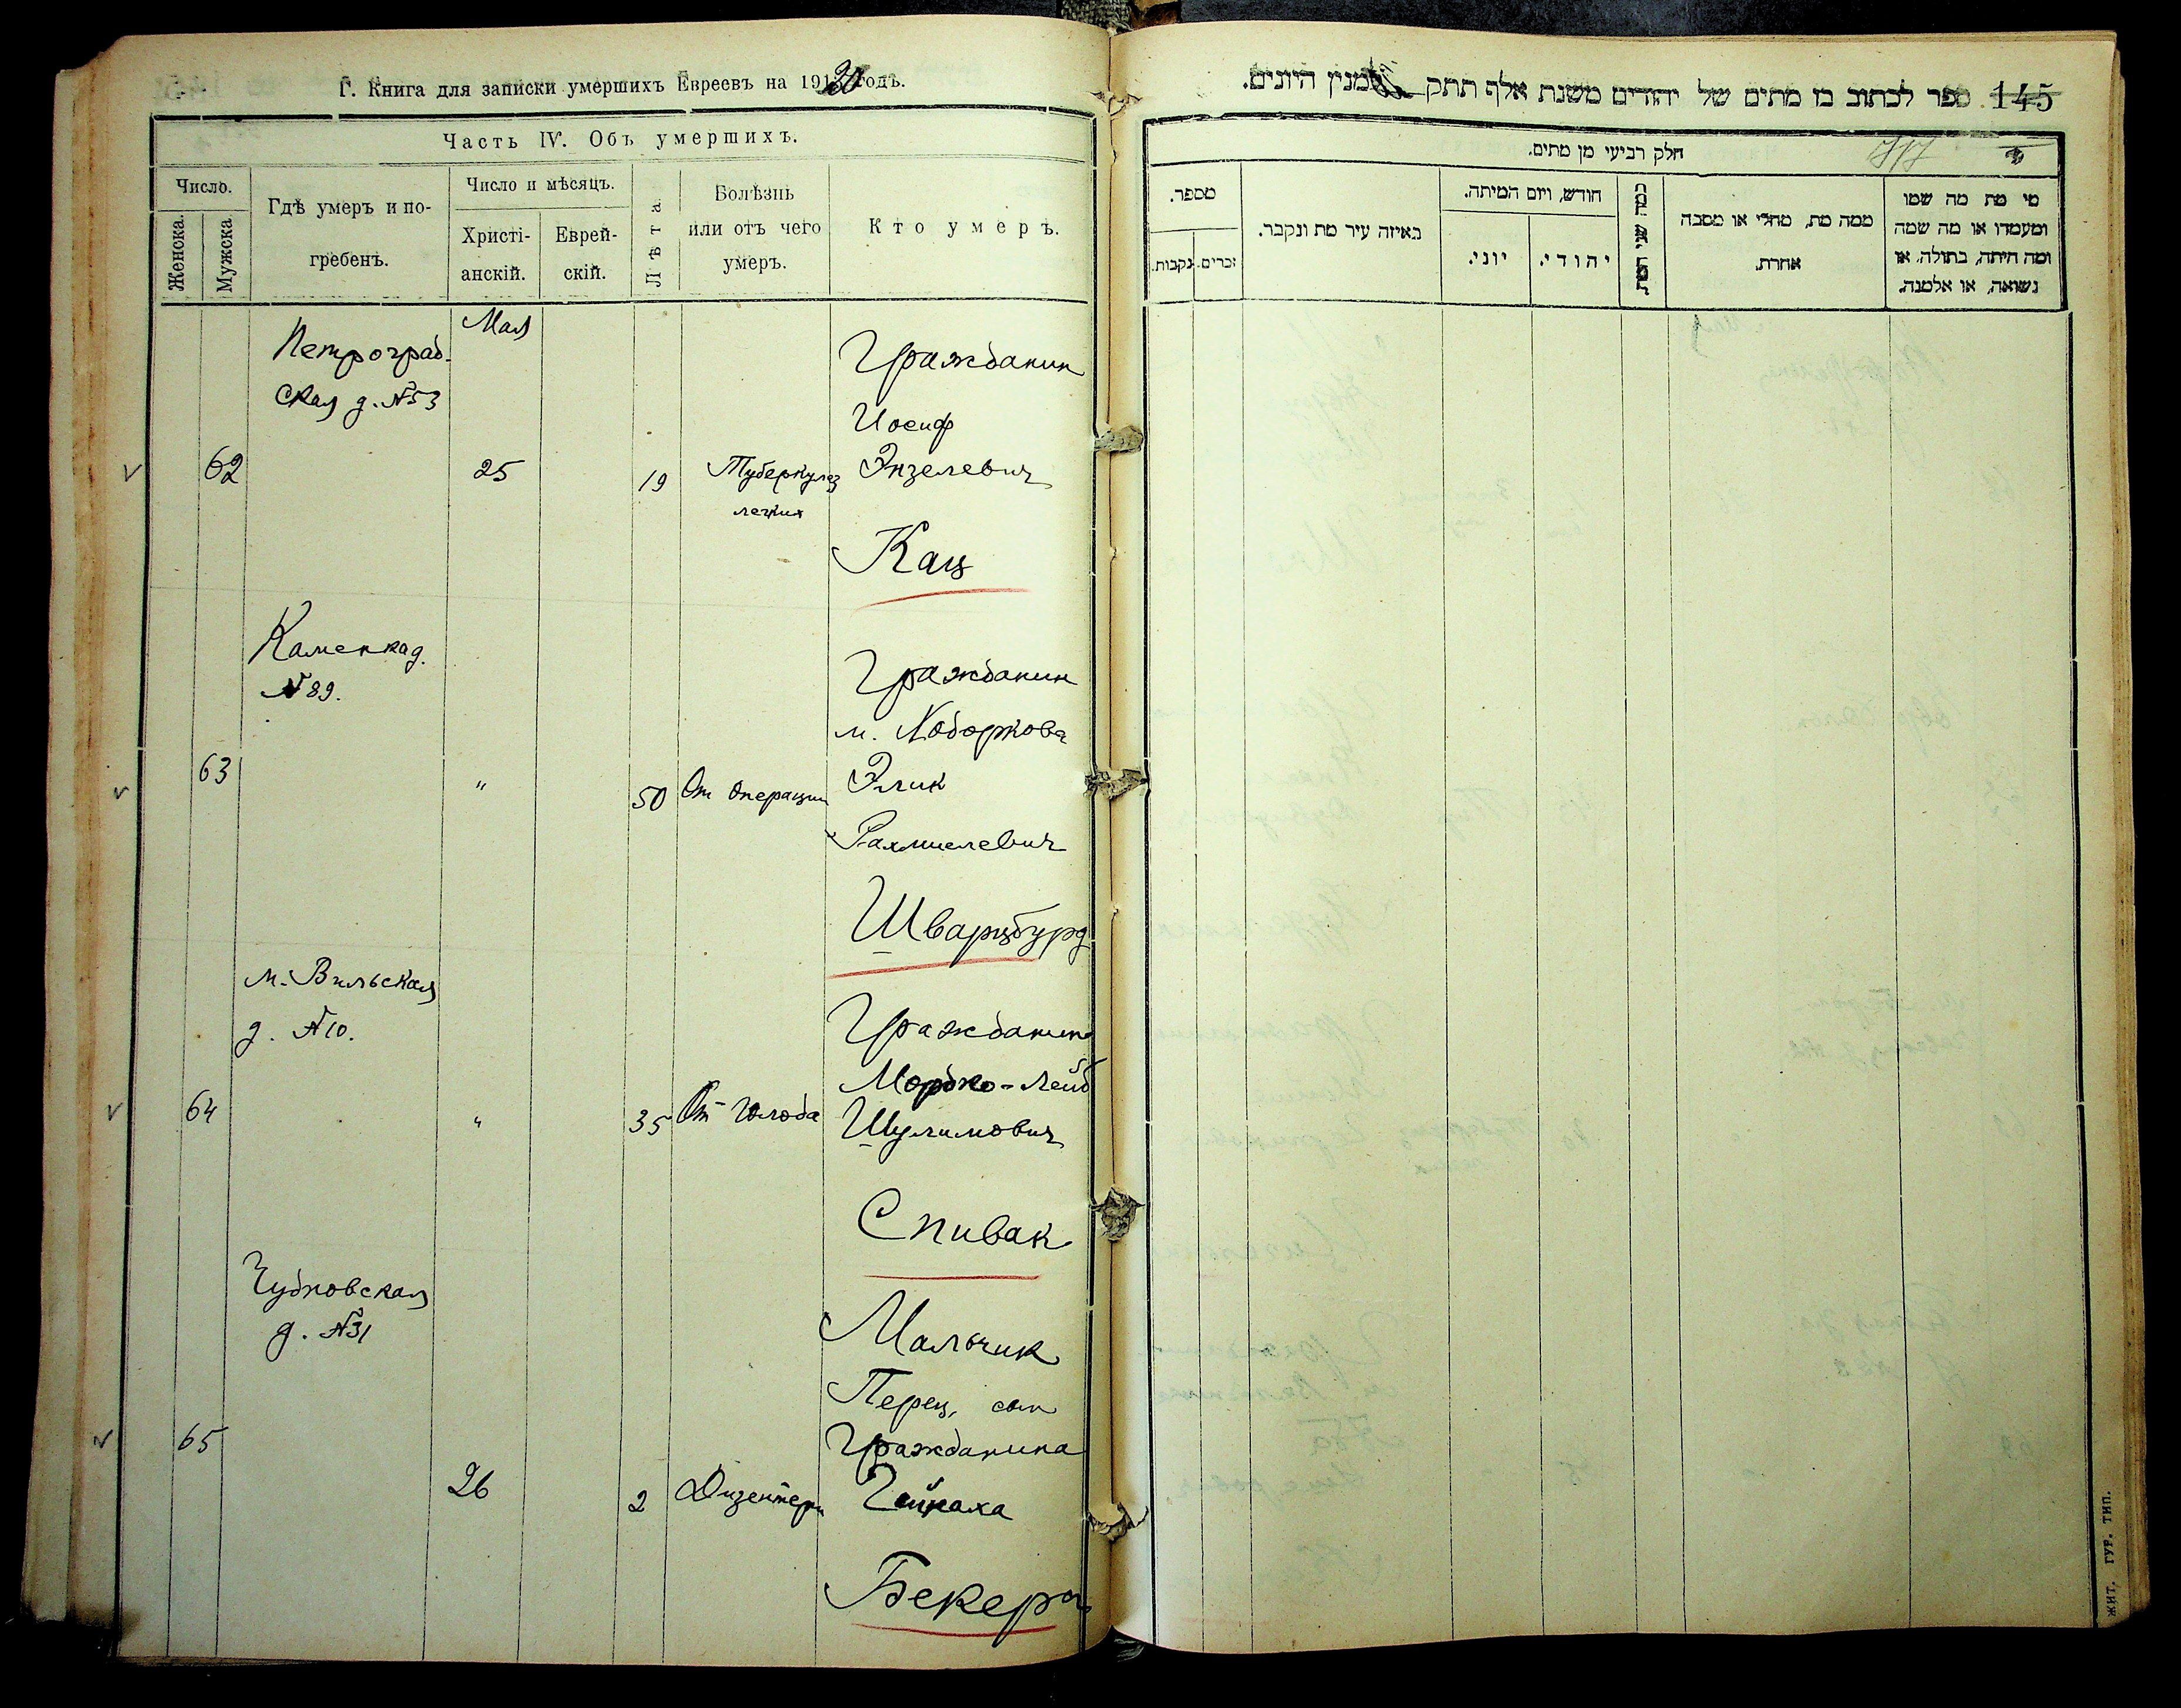 Г. Книга для записки умершихъ Евреевъ на 1920 годъ.
Часть IV. Объ умершихъ.
Число.
Женска.
Мужска
Гдѣ умеръ и по-
гребенъ.
Число и мѣсяцъ.
Христі-
анскій.
Еврей-
скій.
Лѣта.
Болѣзнь
или отъ чего
умеръ.
Кто умеръ.
Петроград-
ская д. №53
Мая
62
25
19
Туберкулез
легких
Гражданин
Иосиф
Энзелевич
Кац
Каменка д.
№ 89.
63
"
50
От операции
Гражданин
м. Ходоркова
Элик
Рахмилевич
Шварцбурд
м. Вильская
д. №10.
64
"
35
От голода
Гражданин
Мордко-Лейб
Шулимович
Спивак
Чудновская
д. №31
65
26
2
Дизентери
Мальчик
Перец, сын
Гражданина
Бекера
145
ספר לכתוב בו מתים של יהודים משנת אלף תתק למנין היונים.
חלק רביעי מן מתים.
מספר.
זכרים.
נקבות.
באיזה עיר מת ונקבר.
חודש, ויום המיתה.
יוני.
יהודי.
כמה שני המת
ממה מת, מחלי או מסבה
אחרת.
מי מת מה שמו
ומעמדו או מה שמה
ומה היתה, בתולה, או
נשואה, או אלמנה.
ЖИТ. ГУР. ТИП.